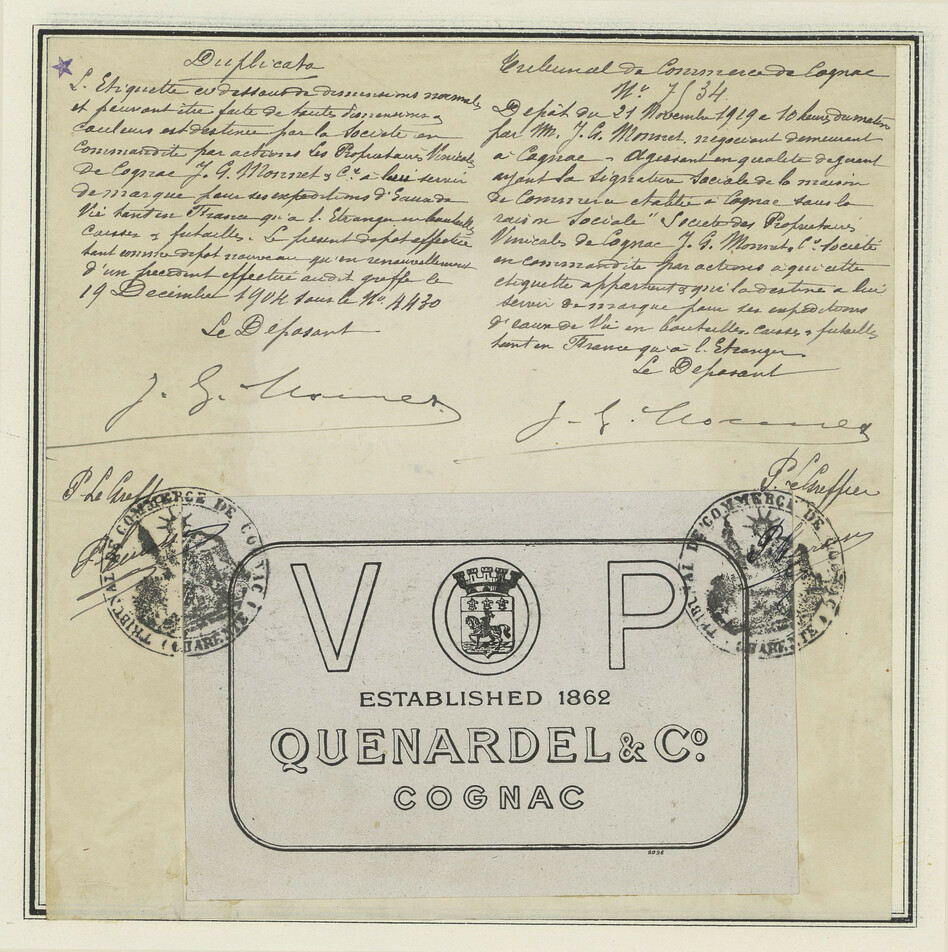 Duplicata
L'Etiquette ci dessous de dimensions normales
et pouvant être faite de toutes dimensions &
couleurs est destinée par la Société en
Commandite par actions Les Propriétaires Vinicoles
de Cognac J. G. Monnet & Cie à lui servir
de marque pour ses expéditions d'Eaux de
Vie tant en France qu'à l'Etranger en bouteilles
caisses & futailles. Le présent dépôt effectué
tant comme dépôt nouveau qu'en renouvellement
d'un précédent effectué audit greffe le
19 Décembre 1904 sous le No. 4430
Le Déposant
J. G. Monnet
P. Le Greffier
Tribunal de Commerce de Cognac
No. 7534
Dépôt du 21 Novembre 1919 à 10 heures du matin
par M. J. G. Monnet, négociant demeurant
à Cognac - Agissant en qualité de gérant
ayant la signature sociale de la maison
de Commerce établie à Cognac sous la
raison sociale "Société des Propriétaires
Vinicoles de Cognac J. G. Monnet & Co. Société
en commandite par actions à qui cette
étiquette appartient & qui la destine à lui
servir de marque pour ses expéditions
d'eaux de Vie en bouteilles, caisses & futailles
tant en France qu'à l'Etranger.
Le Déposant
J. G. Monnet
P. Le Greffier
TRIBUNAL DE COMMERCE DE COGNAC (CHARENTE)
TRIBUNAL DE COMMERCE DE COGNAC (CHARENTE)
V O P
ESTABLISHED 1862
QUENARDEL & Co.
COGNAC